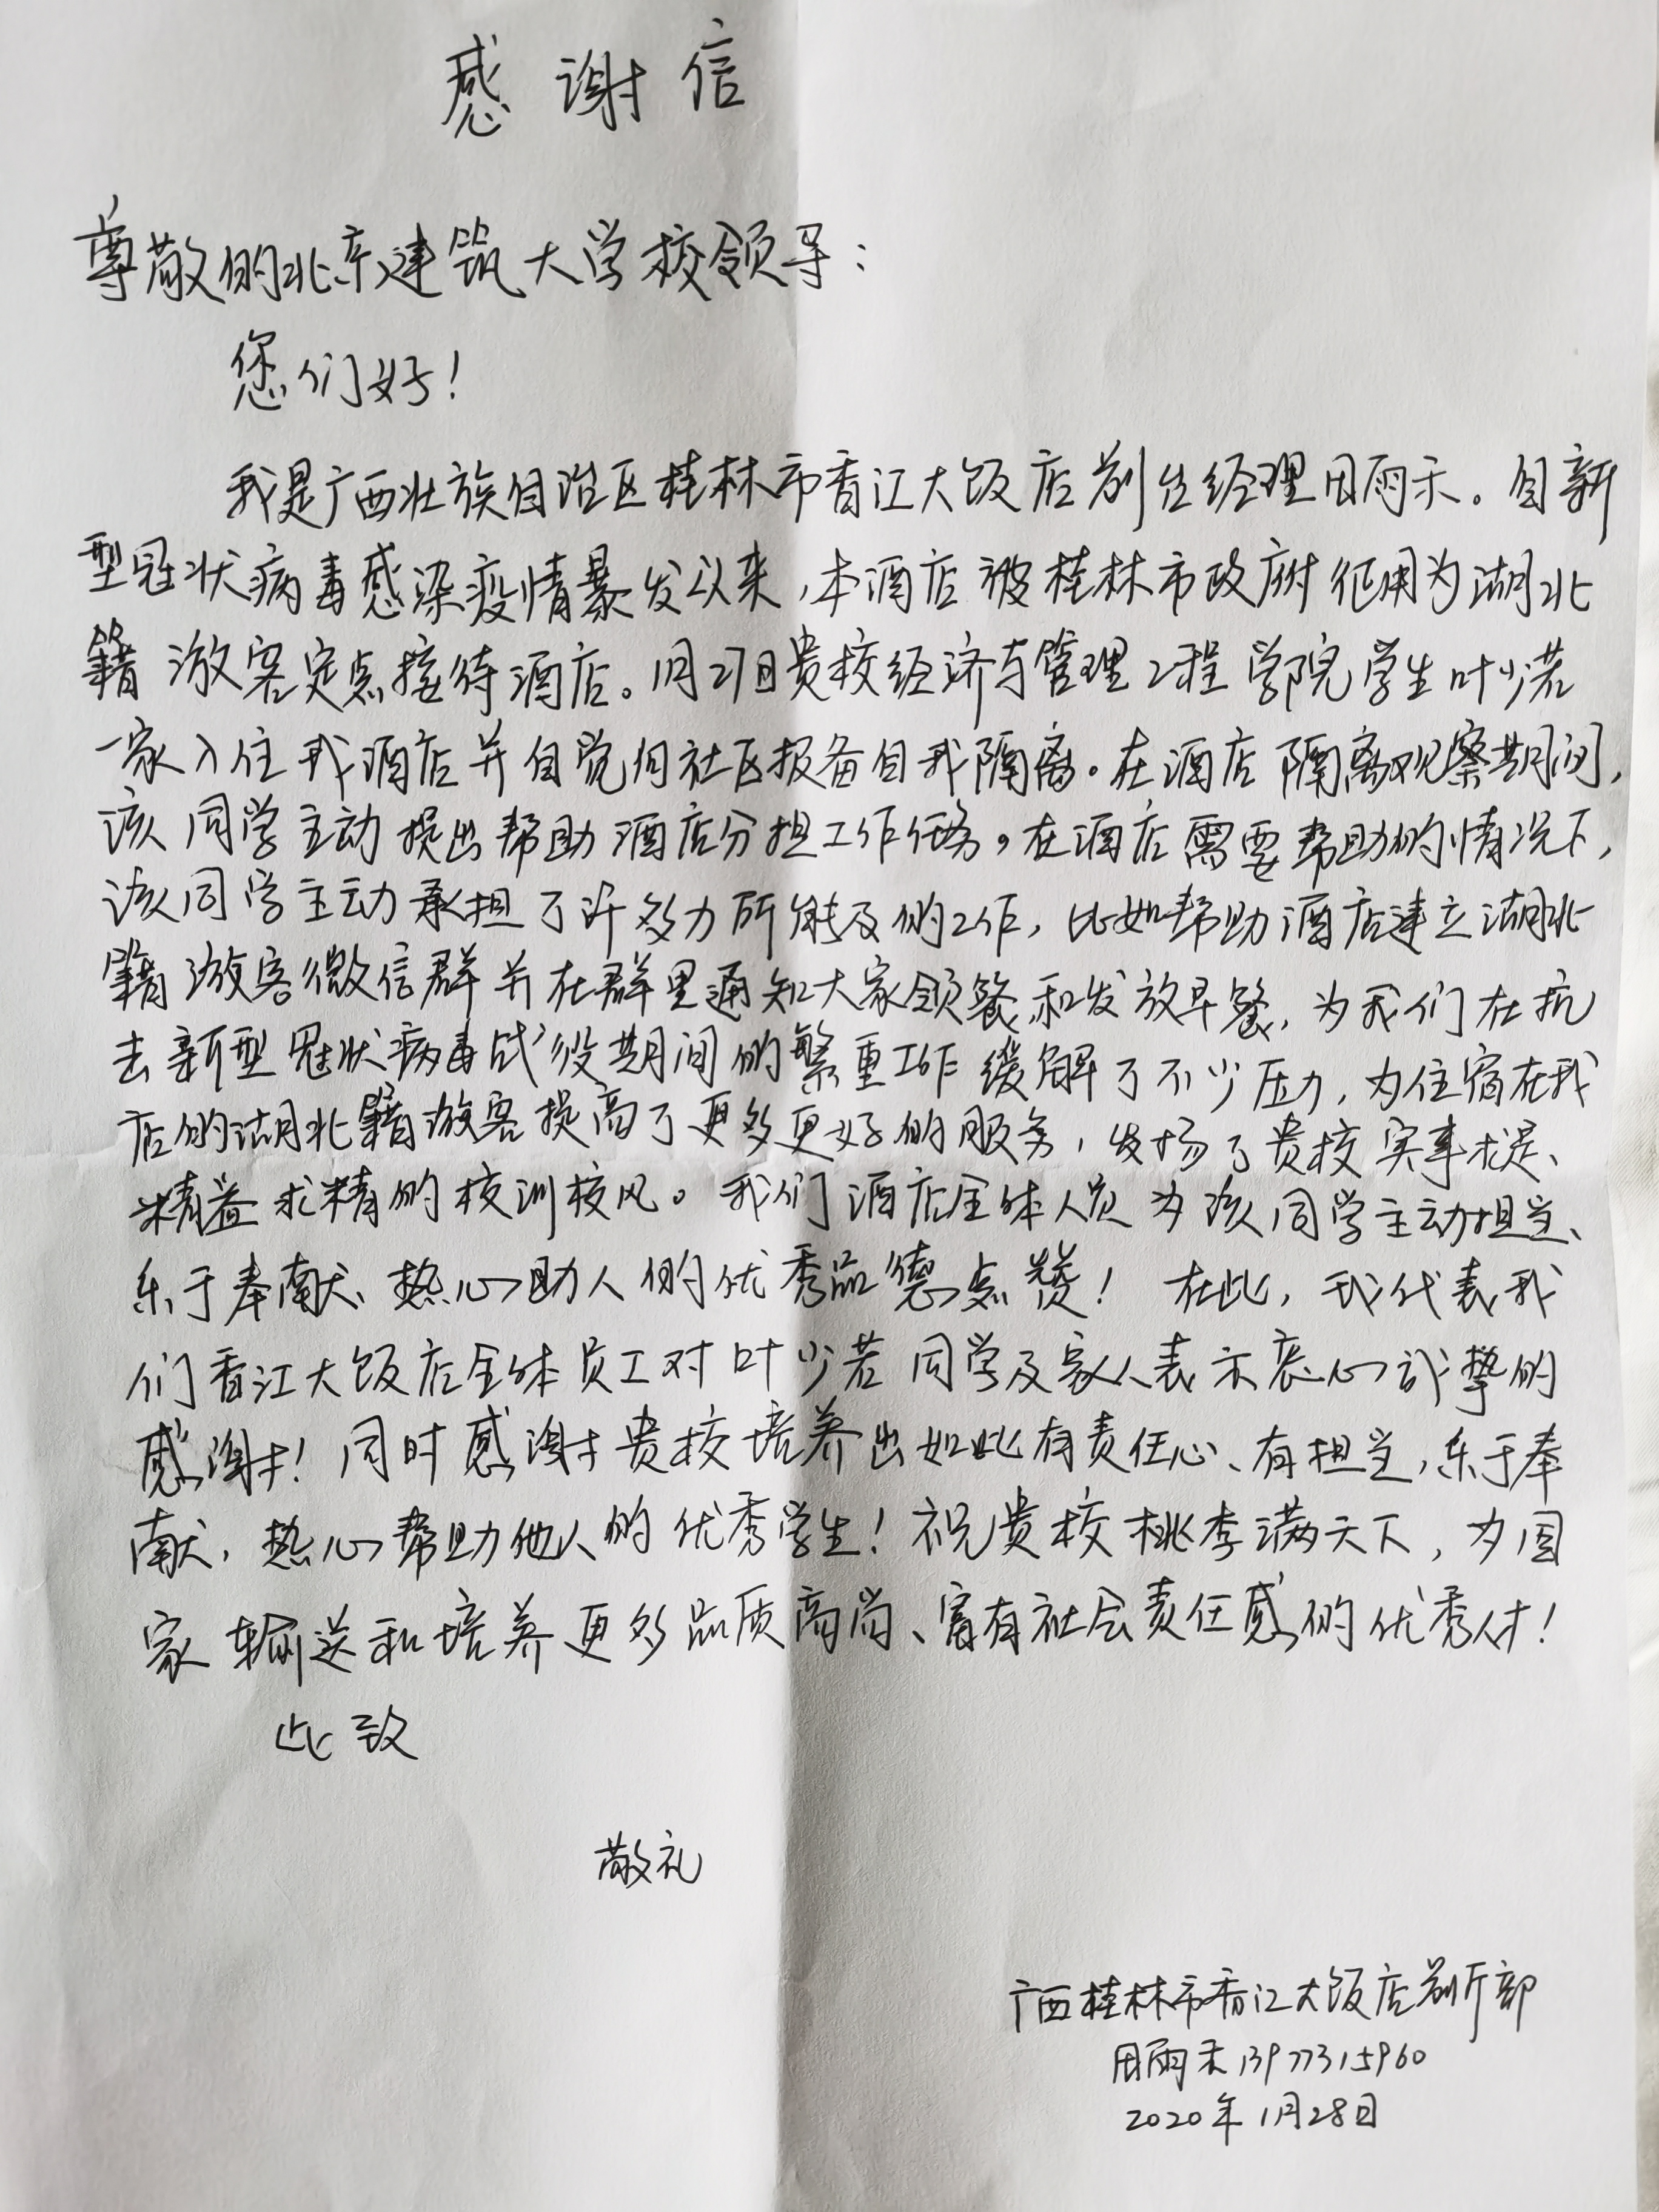 感谢信
尊敬的北京建筑大学校领导：
您们好！
我是广西壮族自治区桂林市香江大饭店前台经理田雨禾。自新
型冠状病毒感染疫情暴发以来，本酒店被桂林市政府征用为湖北
籍游客定点接待酒店。1月27日贵校经济与管理工程学院学生叶少若
一家入住我酒店并自觉向社区报备自我隔离。在酒店隔离观察期间，
该同学主动提出帮助酒店分担工作任务。在酒店需要帮助的情况下，
该同学主动承担了许多力所能及的工作，比如帮助酒店建立湖北
籍游客微信群并在群里通知大家领餐和发放早餐，为我们在抗
击新型冠状病毒战役期间的繁重工作缓解了不少压力，为住宿在我
店的湖北籍游客提高了更多更好的服务，发扬了贵校实事求是、
精益求精的校训校风。我们酒店全体人员为该同学主动担当、
乐于奉献、热心助人的优秀品德点赞！在此，我代表我
们香江大饭店全体员工对叶少若同学及家人表示衷心诚挚的
感谢！同时感谢贵校培养出如此有责任心、有担当，乐于奉
献，热心帮助他人的优秀学生！祝贵校桃李满天下，为国
家输送和培养更多品质高尚、富有社会责任感的优秀人才！
此致
敬礼
广西桂林市香江大饭店前厅部
田雨禾13977315960
2020年1月28日